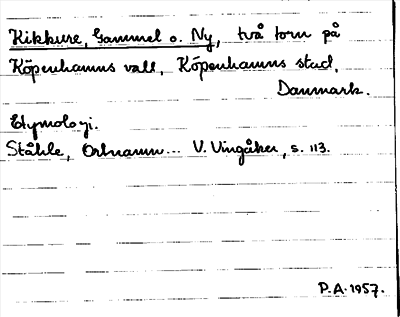 Kikkure, Gammel o. Ny, två torn på
Köpenhamns vall, Köpenhamns stad,
Danmark.
Etymologi.
Ståhle, Ortnamn... V. Vingåker, s. 113.
P.A. 1957.